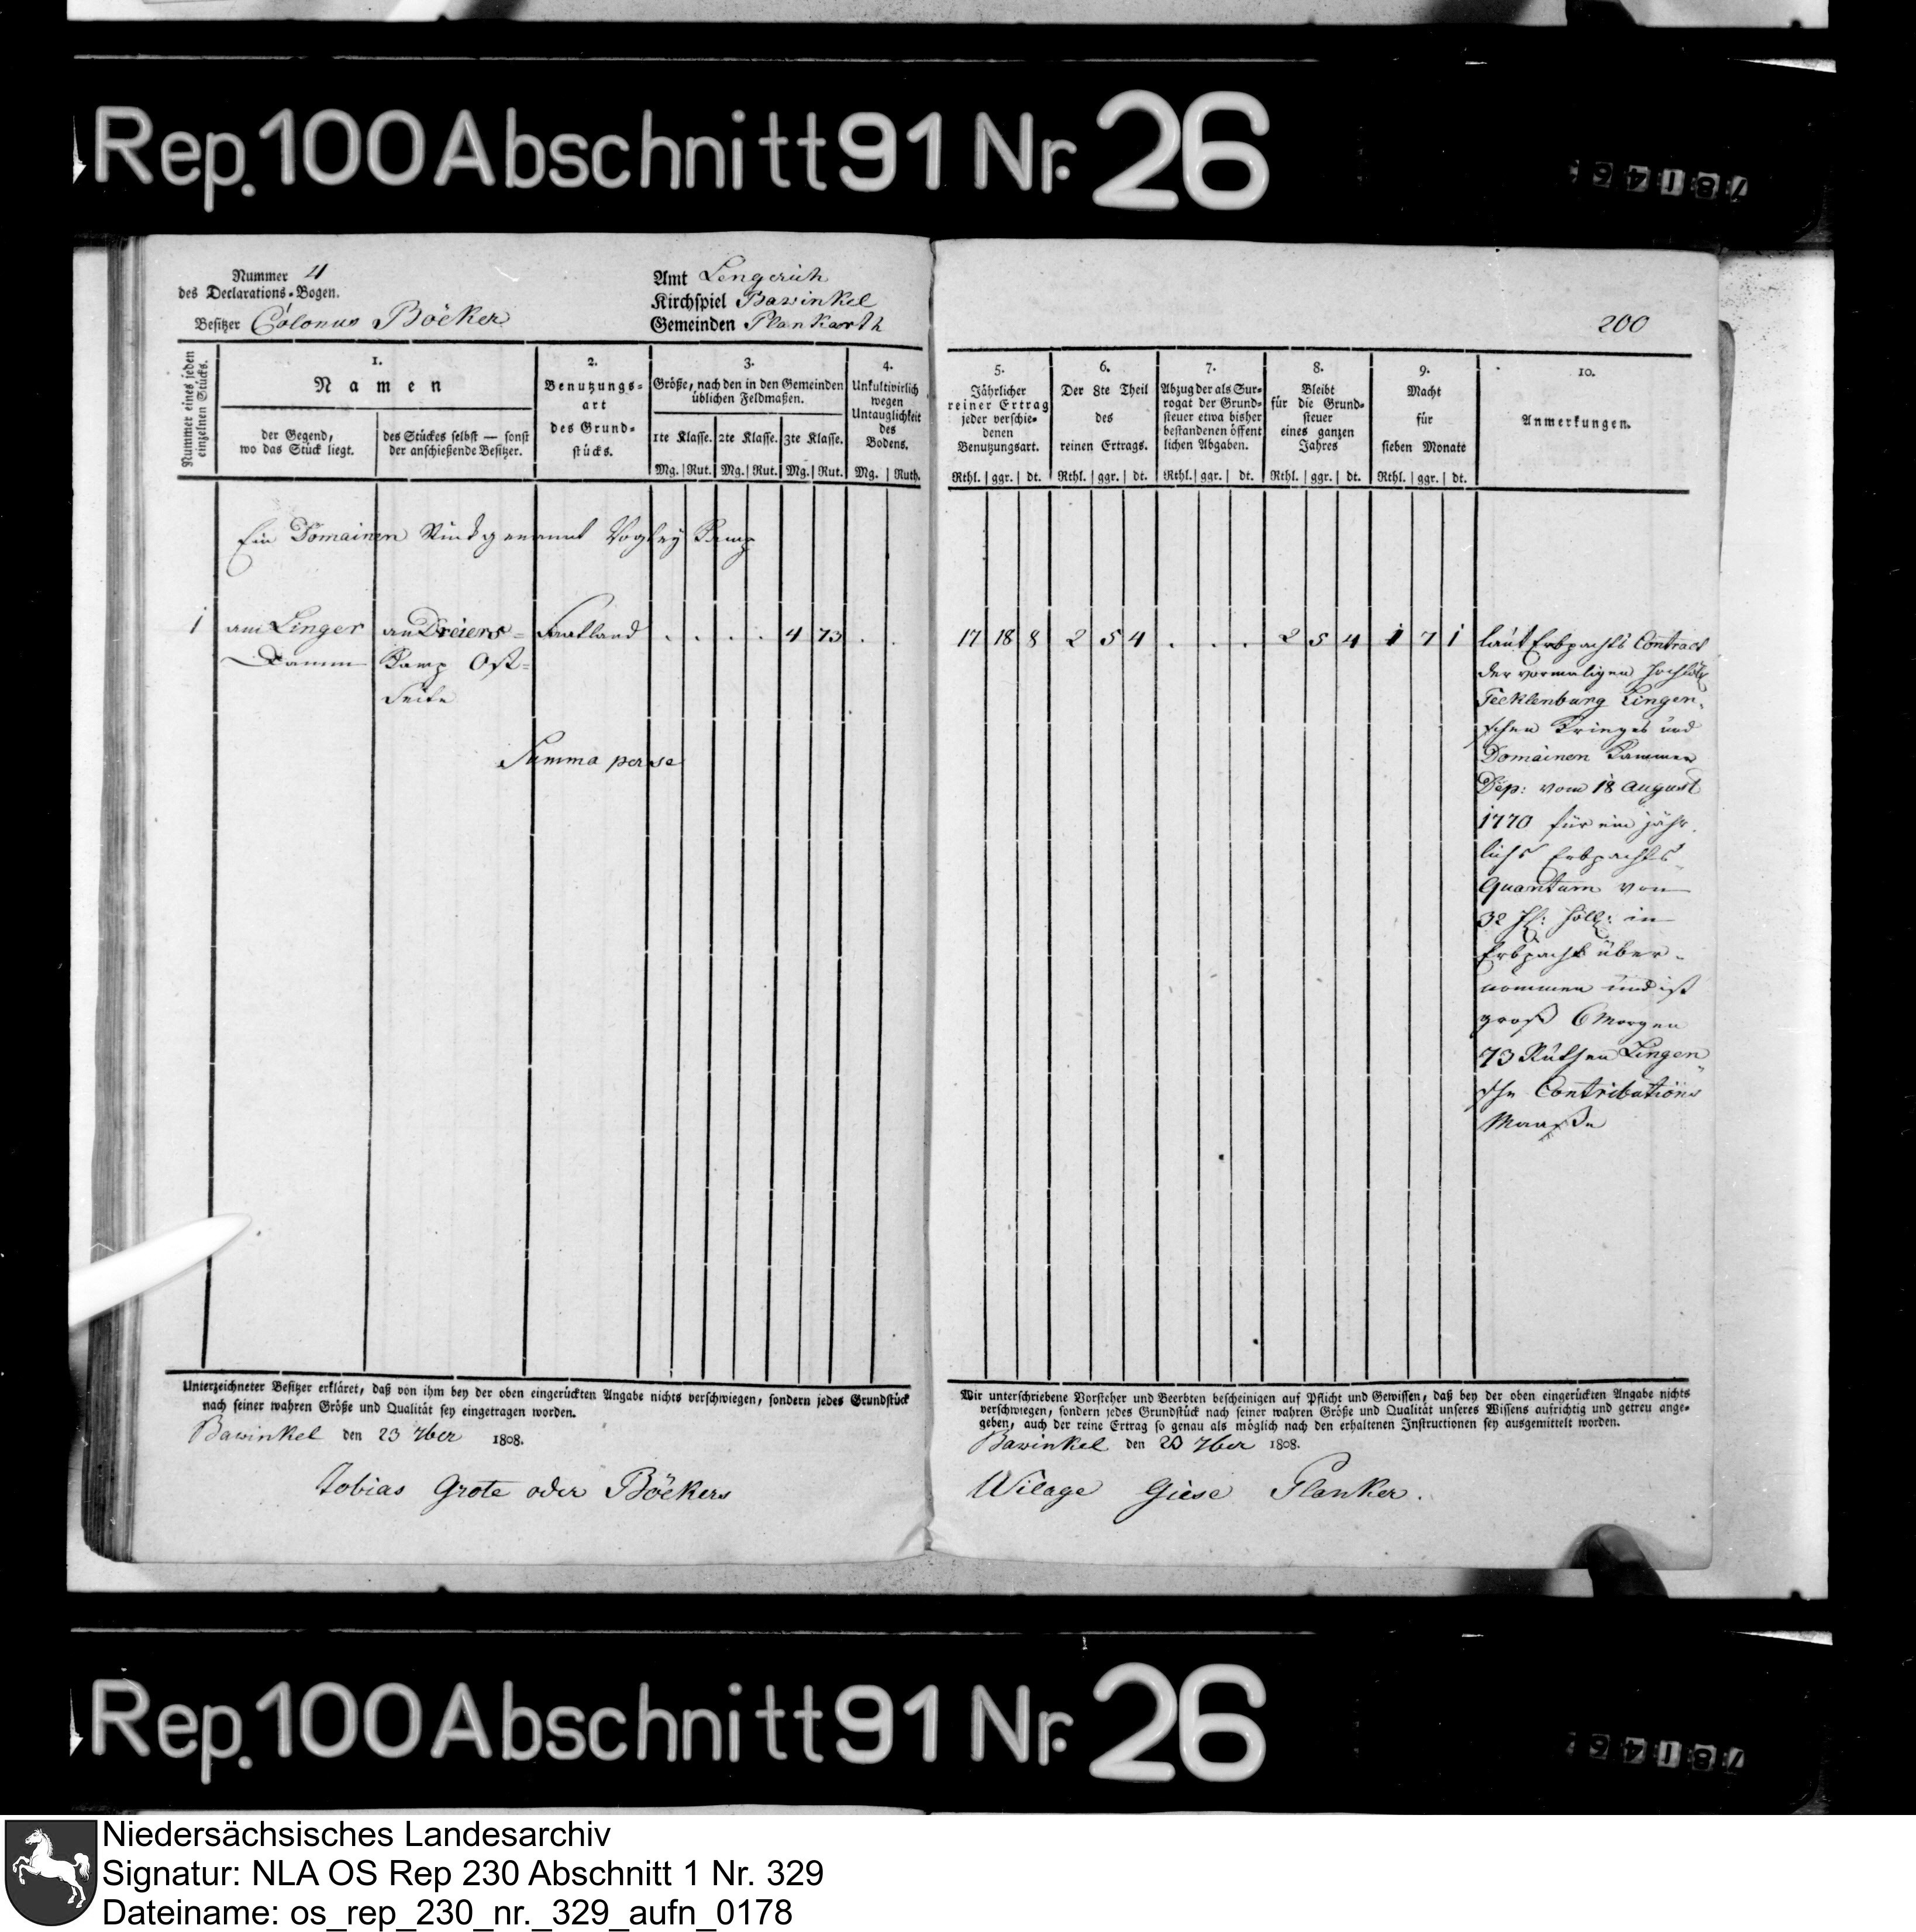 Rep. 100 Abschnitt 91 Nr. 26
Nummer 4
des Declarations-Bogen.
Besitzer Colonus Böeker
Amt Lengerich
Kirchspiel Bawinkel
Gemeinden Plankorth
200
Nummer eines jeden einzelnen Stücks.
1.
Namen
der Gegend,
wo das Stück liegt.
des Stückes selbst — sonst
der anschießende Besitzer.
2.
Benutzungs-
art
des Grund-
stücks.
3.
Größe, nach den in den Gemeinden
üblichen Feldmaßen.
1te Klasse. 2te Klasse. 3te Klasse.
Mg. Rut. Mg. Rut. Mg. Rut.
4.
Unkultivirlich
wegen
Untauglichkeit
des
Bodens.
Mg. Ruth.
5.
Jährlicher
reiner Ertrag
jeder verschie-
denen
Benutzungsart.
Rthl. ggr. dt.
6.
Der 8te Theil
des
reinen Ertrags.
Rthl. ggr. dt.
7.
Abzug der als Sur-
rogat der Grund-
steuer etwa bisher
bestandenen öffent
lichen Abgaben.
Rthl. ggr. dt.
8.
Bleibt
für die Grund-
steuer
eines ganzen
Jahres
Rthl. ggr. dt.
9.
Macht
für
sieben Monate
Rthl. ggr. dt.
10.
Anmerkungen.
Ein Domainen Stück genannt Kamp
1 am Linger an Dreiers- Saatland . . . . 4 73 . . 17 18 8 2 5 4 . . . 2 5 4 1 7 1
Damm Kamp Ost-
Seite
Summa per se
laut Erbpachts Contract
der vormaligen
Tecklenburg Lingen-
schen Krieges und
Domainen Kammer
Dep: vom 18 August
1770 für ein jähr-
lichs Erbpachts-
Quantum von
32 fl: holl: in
Erbpacht über-
nommen und ist
groß 6 Morgen
73 Ruthen Lingen
sche Contributions
Maaße
Unterzeichneter Besitzer erkläret, daß von ihm bey der oben eingerückten Angabe nichts verschwiegen, sondern jedes Grundstück
nach seiner wahren Größe und Qualität sey eingetragen worden.
Bawinkel den 23 7ber 1808.
Tobias Grote oder Böekers
Wir unterschriebene Vorsteher und Beerbten bescheinigen auf Pflicht und Gewissen, daß bey der oben eingerückten Angabe nichts
verschwiegen, sondern jedes Grundstück nach seiner wahren Größe und Qualität unseres Wissens aufrichtig und getreu ange-
geben, auch der reine Ertrag so genau als möglich nach den erhaltenen Instructionen sey ausgemittelt worden.
Bawinkel den 23 7ber 1808.
Wilage Giese Planker.
Rep. 100 Abschnitt 91 Nr. 26
Niedersächsisches Landesarchiv
Signatur: NLA OS Rep 230 Abschnitt 1 Nr. 329
Dateiname: os_rep_230_nr._329_aufn_0178